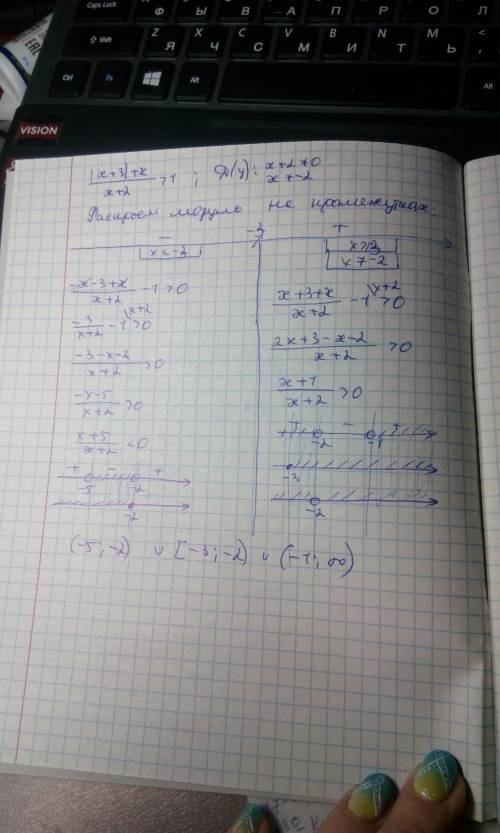 Caps Lock
Ф
Ы
В
А
П
Р
О
Л
Shift
Z Я
X Ч
C С
V М
B И
N Т
M Ь
Ctrl
Fn
Alt
Alt
VISION
|x+3|+x / x+2 > 1 ; D(y): x+2≠0
x≠-2
Раскроем модуль на промежутках:
− -3 +
x<-3
x≥-3
x≠-2
-x-3+x / x+2 -1>0
-3 / x+2 -1>0
-3-x-2 / x+2 >0
-x-5 / x+2 >0
x+5 / x+2 <0
+ − +
-5 -2
-2
x+3+x / x+2 -1>0
2x+3-x-2 / x+2 >0
x+1 / x+2 >0
+ − +
-2 -1
-3
-2
(-5;-2) ∪ [-3;-2) ∪ (-1;∞)